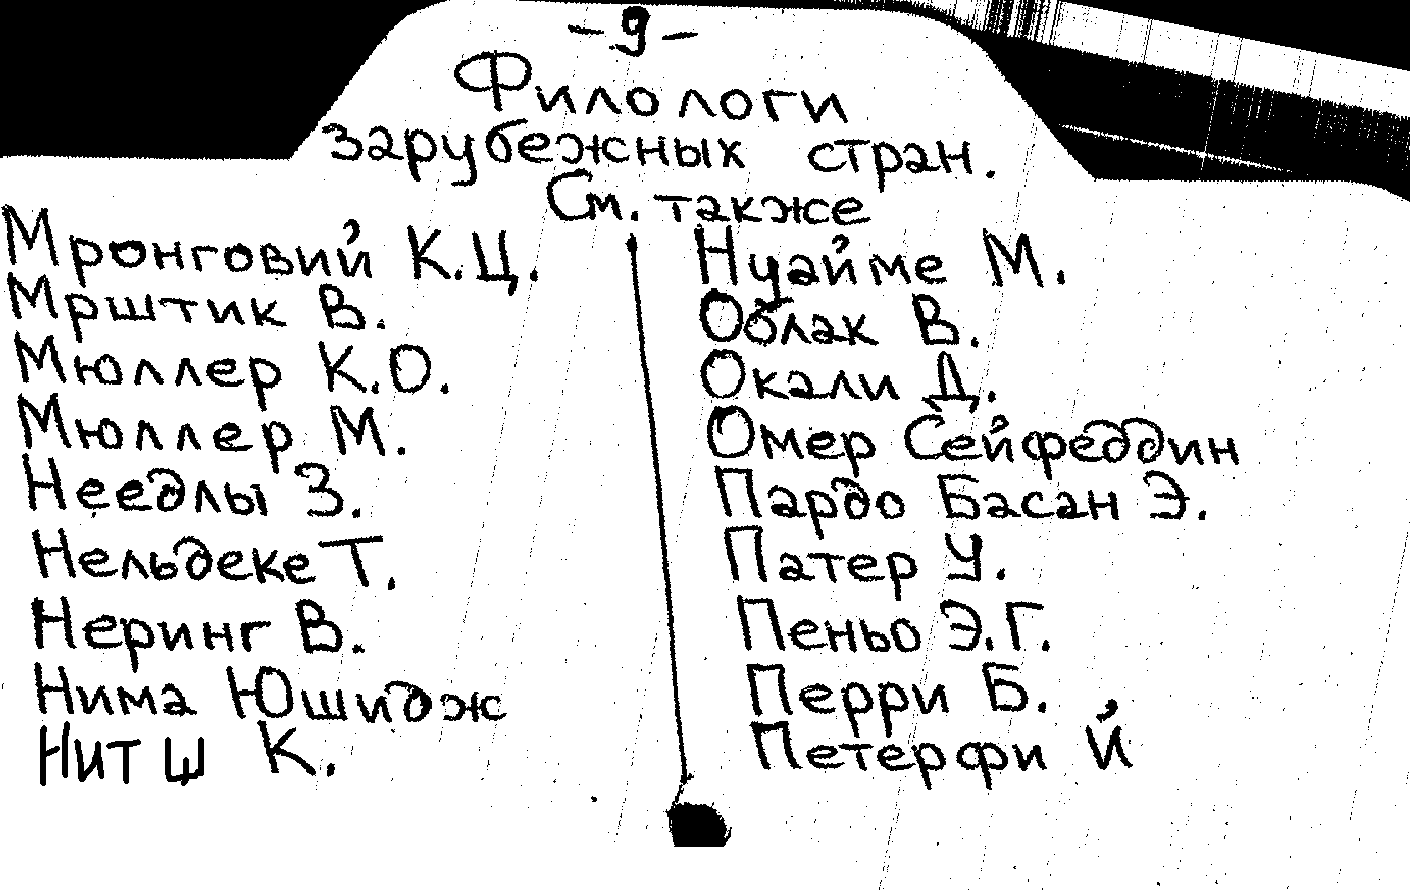 - 9 -
Филологи
зарубежных стран.
См. также
Мронговий К.Ц.
Мрштик В.
Мюллер К.О.
Мюллер М.
Неедлы З.
Нельдеке Т.
Неринг В.
Нима Юшидж
Нитш К.
Нуайме М.
Облак В.
Окали Д.
Омер Сейфеддин
Пардо Басан Э.
Патер У.
Пеньо Э.Г.
Перри Б.
Петерфи Й